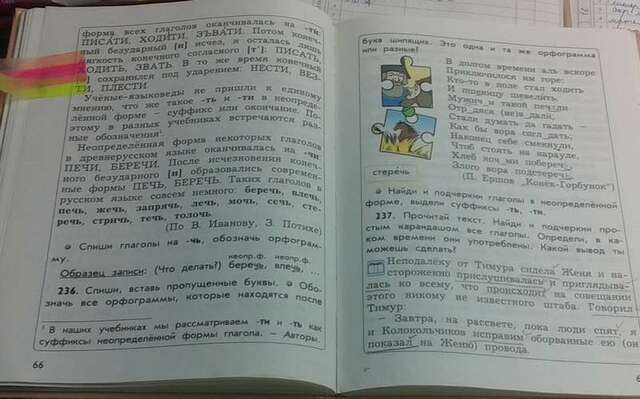 форма всех глаголов оканчивалась на -ти:
ПИСАТИ, ХОДИТИ, ЗЪВАТИ. Потом конеч-
ный безударный [и] исчез, и осталась лишь
мягкость конечного согласного [т']: ПИСАТЬ,
ХОДИТЬ, ЗВАТЬ. В то же время конечный
[и] сохранился под ударением: НЕСТИ, ВЕЗ-
ТИ, ПЛЕСТИ.
Учёные-языковеды не пришли к единому
мнению, что же такое -ть и -ти в неопреде-
лённой форме – суффикс или окончание. По-
этому в разных учебниках встречаются раз-
ные обозначения¹.
Неопределённая форма некоторых глаголов
в древнерусском языке оканчивалась на -чи:
ПЕЧИ, БЕРЕЧИ. После исчезновения конеч-
ного безударного [и] образовались современ-
ные формы ПЕЧЬ, БЕРЕЧЬ. Таких глаголов в
русском языке совсем немного: беречь, влечь,
печь, жечь, запрячь, лечь, мочь, сечь, сте-
речь, стричь, течь, толочь.
(По В. Иванову, З. Потихе)
Спиши глаголы на -чь, обозначь орфограм-
му.
неопр.ф. неопр.ф.
Образец записи: (Что делать?) беречь, влечь, ...
236. Спиши, вставь пропущенные буквы. Обо-
значь все орфограммы, которые находятся после
¹ В наших учебниках мы рассматриваем -ти и -ть как
суффиксы неопределённой формы глагола. – Авторы.
66
буква шипящих. Это одна и та же орфограмма
или разные?
В долгом времени аль вскоре
Приключилося им горе:
Кто-то в поле стал ходить
И пшеницу шевелить.
Мужич и такой печали
Отр дяся (не)в дали;
Стали думать да гадать –
Как бы вора согл дать;
Наконец себе смекнули,
Чтоб стоять на карауле,
Хлеб ноч ми поберечь,
Злого вора подстеречь.
(П. Ершов „Конёк-Горбунок")
стеречь
Найди и подчеркни глаголы в неопределённой
форме, выдели суффиксы -ть, -ти.
237. Прочитай текст. Найди и подчеркни про-
стым карандашом все глаголы. Определи, в ка-
ком времени они употреблены. Какой вывод ты
можешь сделать?
Неподалёку от Тимура сидела Женя и на-
стороженно прислушивалась и приглядыва-
лась ко всему, что происходит на совещании
этого никому не известного штаба. Говорил
Тимур:
– Завтра, на рассвете, пока люди спят, я
и Колокольчиков исправим оборванные ею (он
показал на Женю) провода.